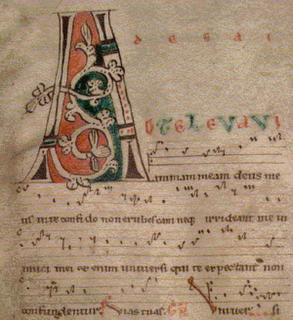 A
D TE LEVAVI
nimam meam deus me
us in te confido non erubescam neq irrideant me in
imici mei et enim universi qui te expectant non
confundentur vias tuas. GR Univer si